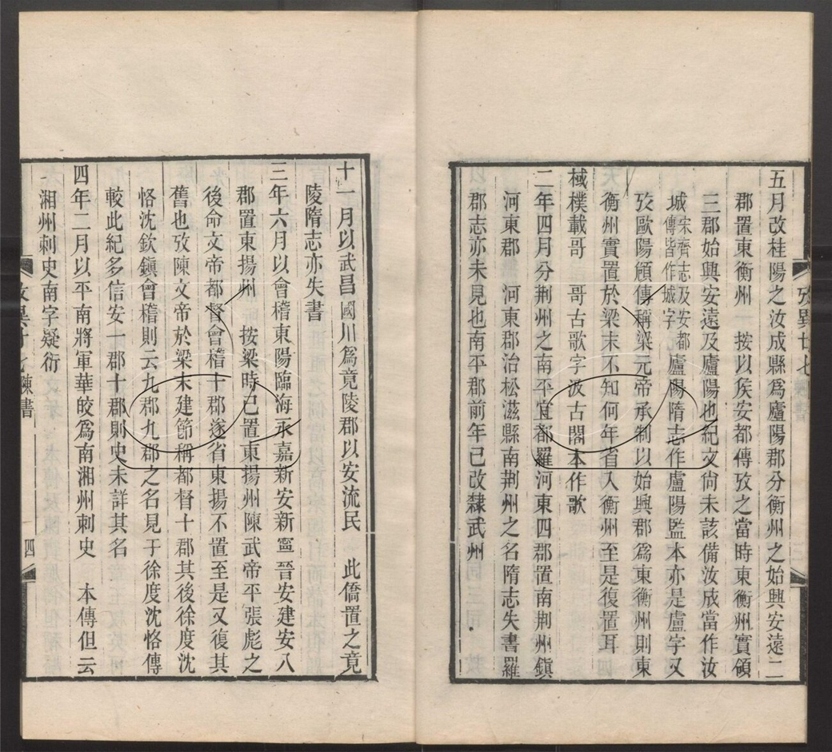 五月改桂陽之汝成縣爲廬陽郡分衡州之始興安遠二
郡置東衡州　按以矦安都傳攷之當時東衡州實領
三郡始興安遠及廬陽也紀文尙未該備汝成當作汝
城宋齊志及安都傳皆作城字廬陽隋志作盧陽監本亦是盧字又
攷歐陽頠傳稱梁元帝承制以始興郡爲東衡州則東
衡州實置於梁末不知何年省入衡州至是復置耳
棫樸載哥　哥古歌字汲古閣本作歌
二年四月分荆州之南平宜都羅河東四郡置南荆州鎭
河東郡　河東郡治松滋縣南荆州之名隋志失書羅
郡志亦未見也南平郡前年已改隸武州
攷異廿七
十一月以武昌國川爲竟陵郡以安流民　此僑置之竟
陵隋志亦失書
三年六月以會稽東陽臨海永嘉新安新寧晉安建安八
郡置東揚州　按梁時已置東揚州陳武帝平張彪之
後命文帝都督會稽十郡遂省東揚不置至是又復其
舊也攷陳文帝於梁末建節稱都督十郡其後徐度沈
恪沈欽鎭會稽則云九郡九郡之名見于徐度沈恪傳
較此紀多信安一郡十郡則史未詳其名
四年二月以平南將軍華皎爲南湘州刺史　本傳但云
湘州刺史南字疑衍
陳書
四